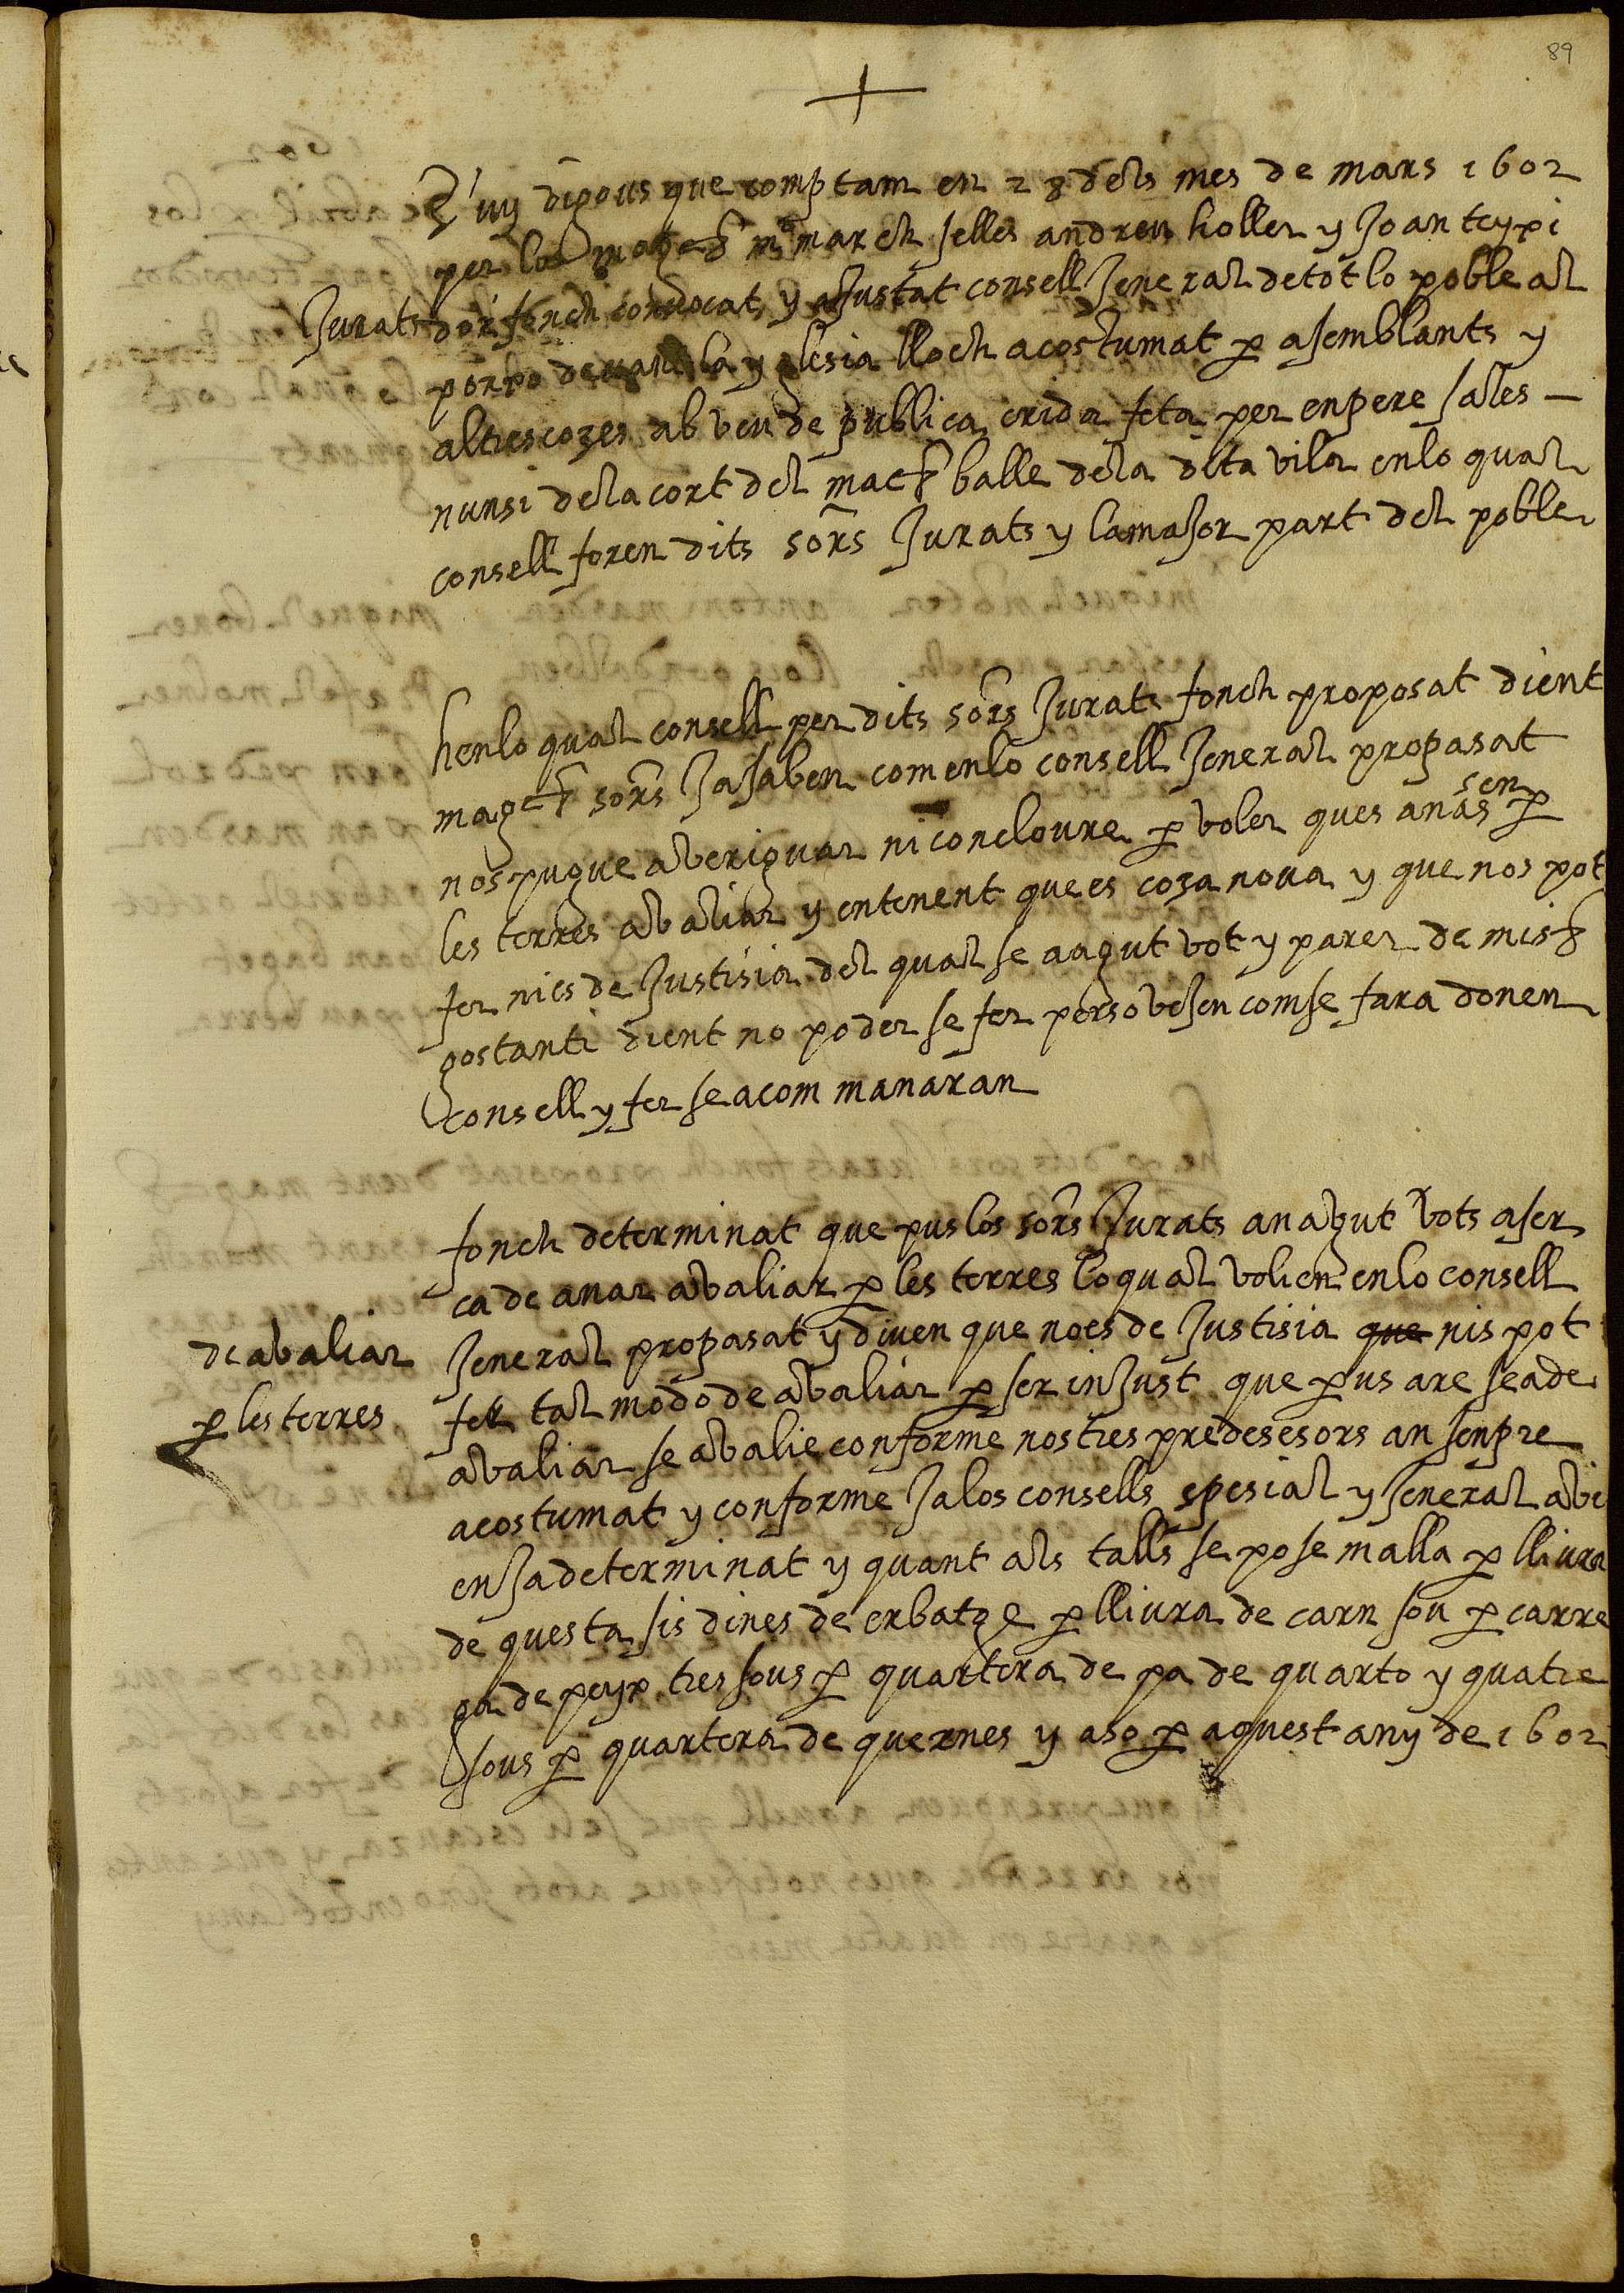 89
uy dijous que comptam en 28 dels mes de mars 1602
per los mag^cs m^o march selles andreu soller y Joan teyxi
Jurats dor fonch convocat y aJustat consell Jeneral de tot lo poble al
porxo devant la yglesia lloch acostumat p asemblants y
altres cozes ab veu de publica crida feta per en pere sales
nunsi de la cort del mac^h balle de la dita vila en lo qual
consell foren dits sors Jurats y la maJor part del poble
hen lo qual consell per dits sors Jurats fonch proposat dient
mag^cs sors Ja saben com en lo consell Jeneral propasat
nos pugue averiguar ni concloure p voler ques anas sen p
les terres avaliar y entenent que es coza nova y que nos pot
fer ni es de Justisia del qual se a agut vot y parer de mis^r
gostanti dient no poder se fer perso veJen com se fara donen
consell y fer se a com manaran
fonch determinat que pus los sors Jurats an agut vots aser
ca de anar avaliar p les terres lo qual volien en lo consell
de avaliar
p les terres
Jeneral propasat y diuen que no es de Justisia que nis pot
fer tal modo de avaliar p ser inJust que pus are se a de
avaliar se avalie conforme nostres predesesors an senpre
acostumat y conforme Ja los consells spesial y Jeneral avi
en Ja determinat y quant als talls se pose malla p lliura
de questa sis dines de erbatge p lliura de carn sou p carre
ga de peyx tres sous p quartera de pa de quarto y quatre
sous p quartera de quernes y aso p aquest any de 1602